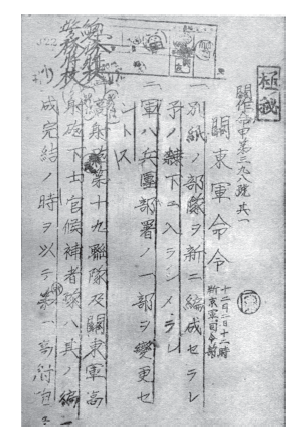 極秘
關作命甲第三九八號其一
關東軍命令
十二月二日十二時
新京軍司令部
一、別紙ノ部隊ヲ新ニ編成セラレ
予ノ隷下ニ入ラシメラル
二、軍ハ兵團部署ノ一部ヲ變更セ
ントス
射砲第十九聯隊及關東軍高
射砲下士官候補者隊ハ其ノ編
成完結ノ時ヲ以テ第一高射